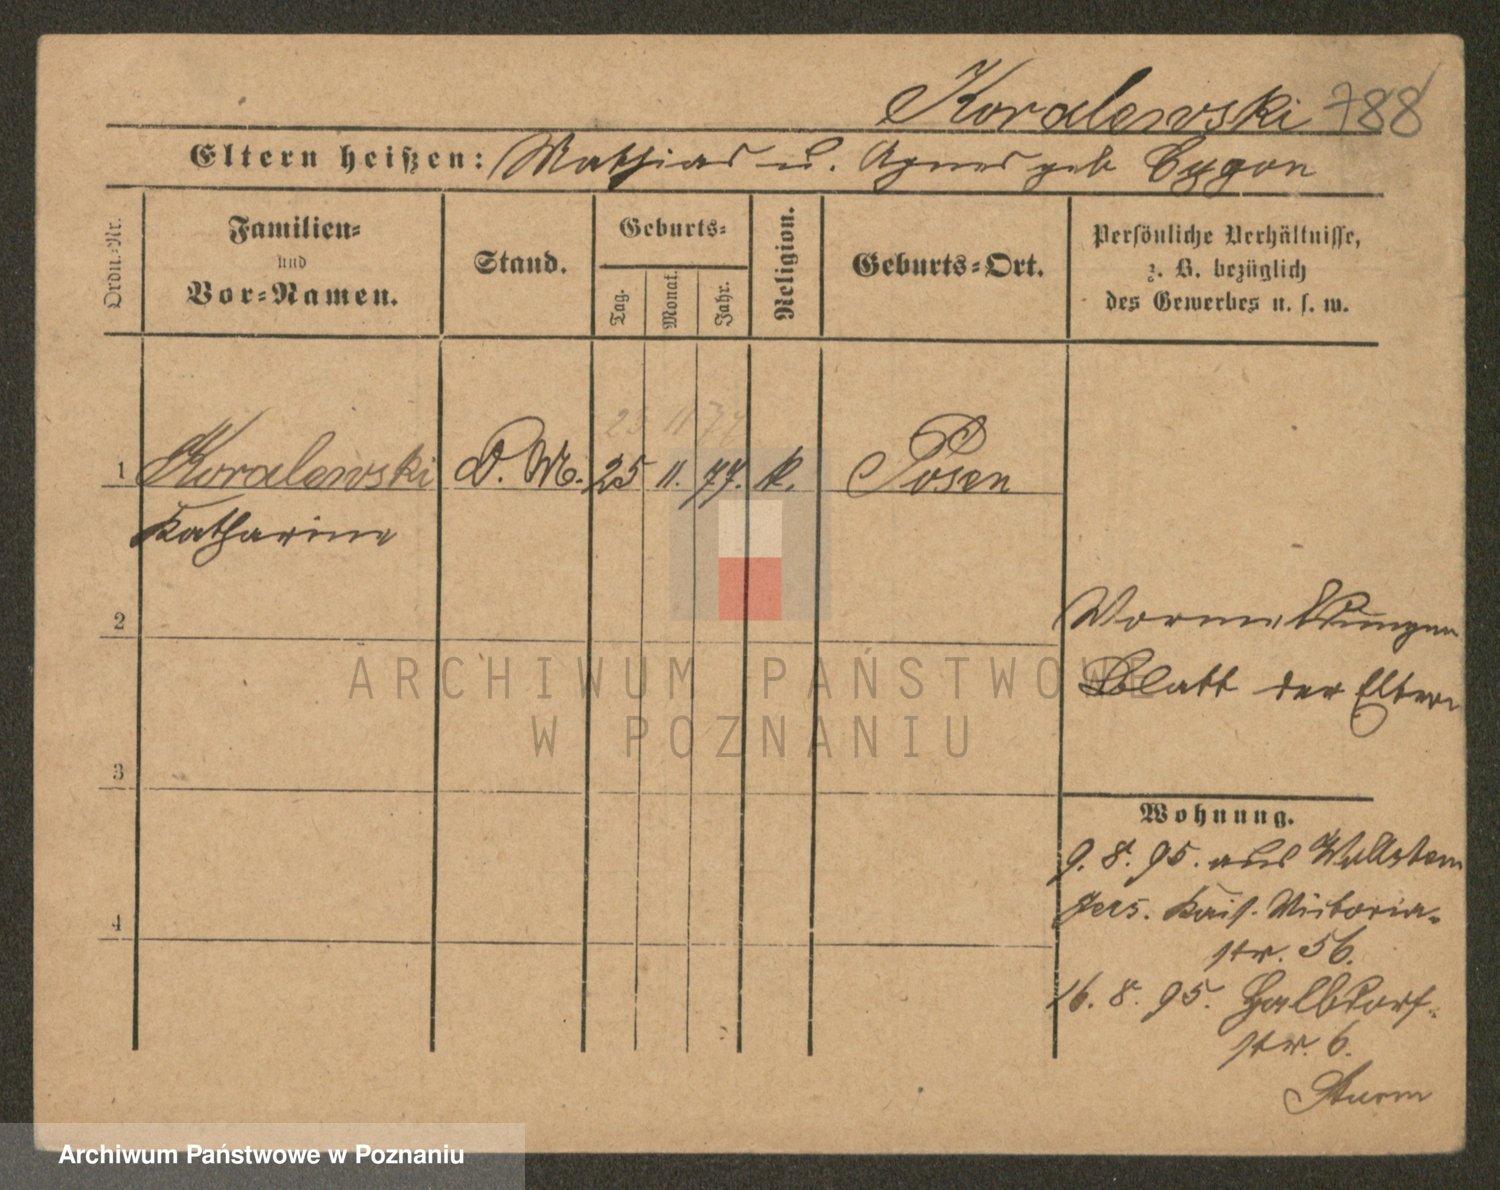 Koralewski 788
Eltern heißen: Mathias u. Agnes geb Cygon
Ordn.-Nr.
Familien-
und
Vor-Namen.
Stand.
Geburts-
Tag.
Monat.
Jahr.
Religion.
Geburts-Ort.
Persönliche Verhältnisse,
z. B. bezüglich
des Gewerbes u. s. w.
23 11 77
1 Koralewski D. M. 25 11. 77. k. Posen
Katharina
2
Blatt der Eltern
3
Wohnung.
9. 8. 95. aus Wollstein
Jers. Kais. Victoria-
str. 56.
4
16. 8. 95. Halbdorf-
str. 6.
Sturm
ARCHIWUM PAŃSTWOWE
W POZNANIU
Archiwum Państwowe w Poznaniu